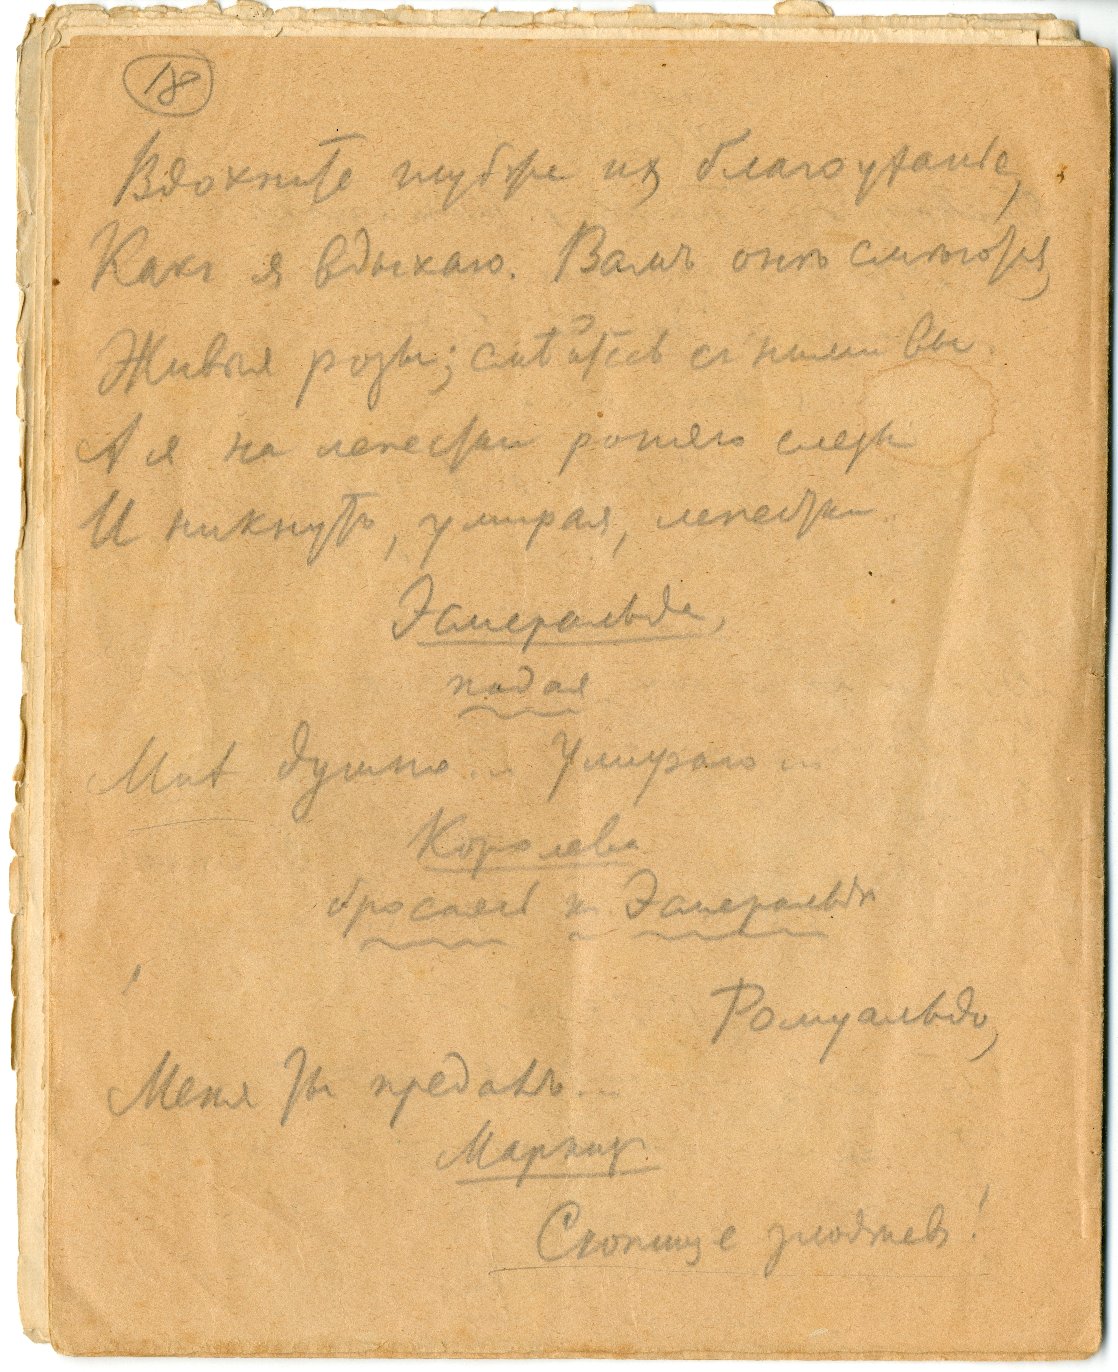 18
Вдохните глубже их благоуханье,
Какъ я вдыхаю. Вамъ онѣ смѣются,
Живыя розы; смѣйтесь съ ними вы.
А я на лепестки роняю слезы
И никнутъ, умирая, лепестки.
Эсмеральда,
падая
Мнѣ душно... Умираю...
Королева
бросаясь къ Эсмеральдѣ
Ромуальдо,
Меня ты предалъ...
Маркиз
Скопище злодѣевъ!